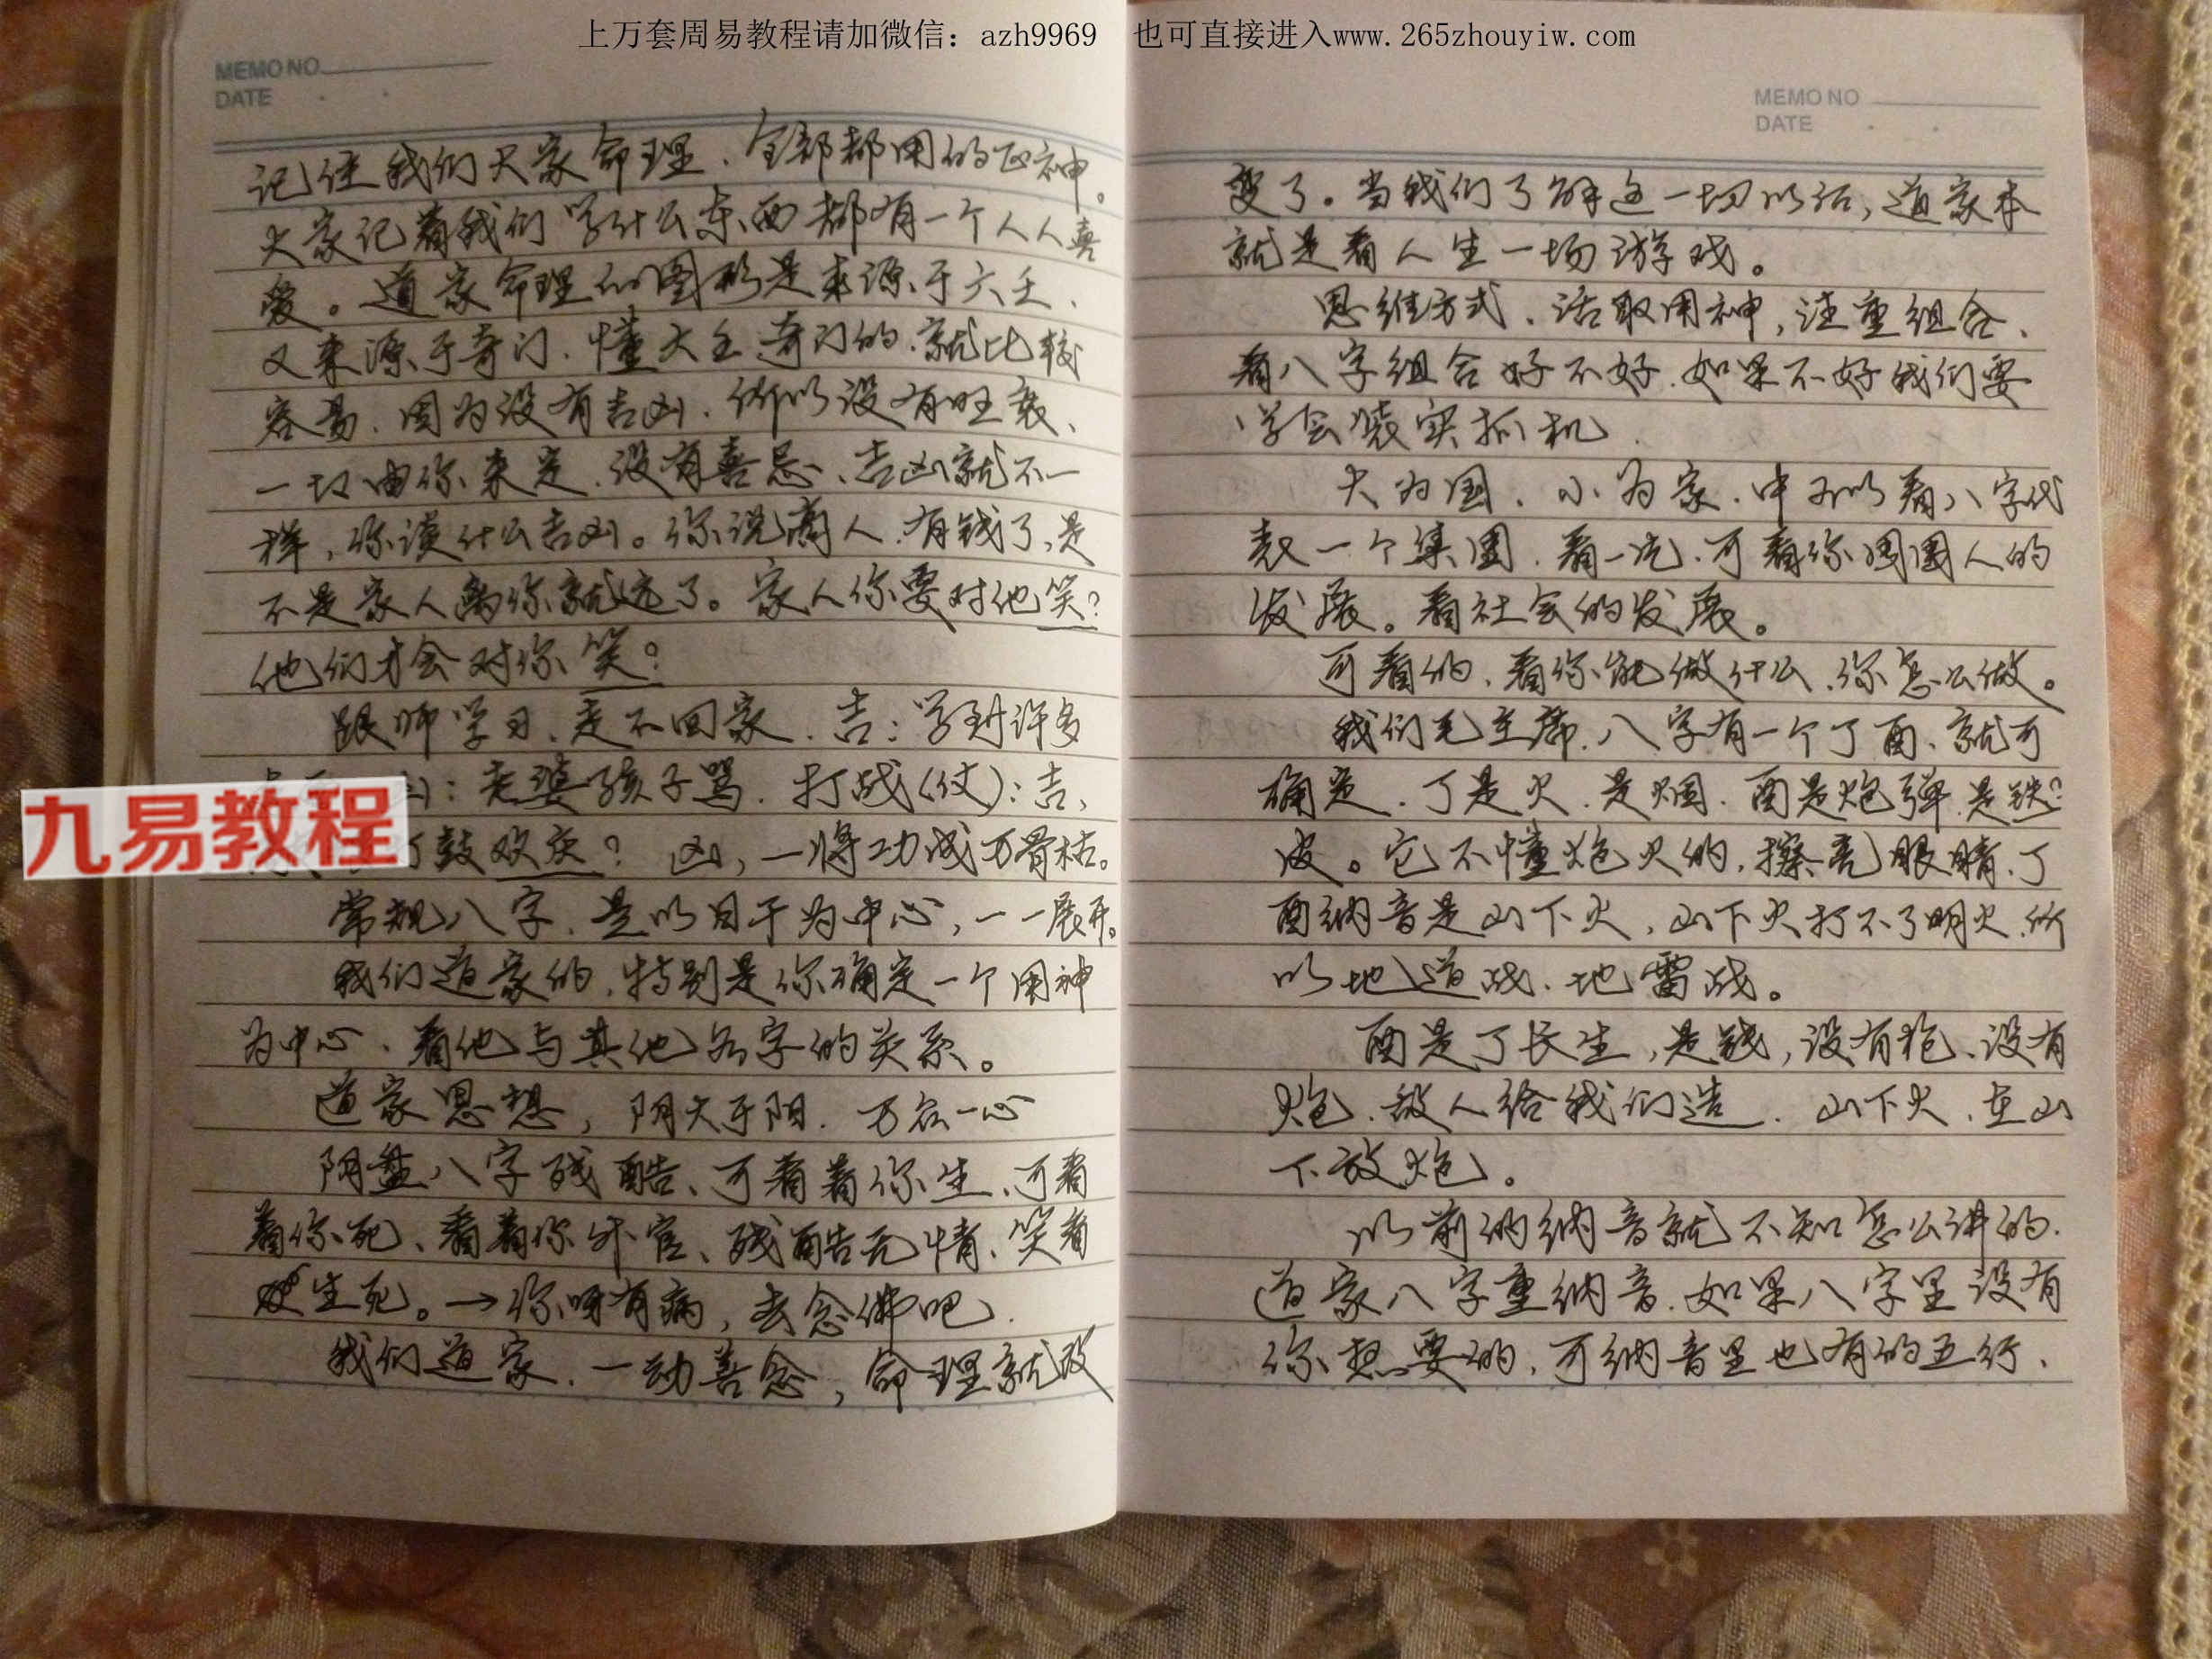 上万套周易教程请加微信：azh9969 也可直接进入www.265zhouyiw.com
MEMO NO
DATE
记住我们大家命理、全部都用的正神。
大家记着我们学什么东西都有一个人人喜
爱。道家命理的图形是来源于六壬、
又来源于奇门、懂大壬奇门的、就比较
容易、因为没有吉凶、所以没有旺衰、
一切由你来定、没有喜忌、吉凶就不一
样，你谈什么吉凶。你说商人、有钱了，是
不是家人离你就远了。家人你要对他笑？
他们才会对你笑？
跟师学习、走不回家、吉：学到许多
：老婆孩子骂、打战（仗）：吉、
打鼓欢庆？凶，一将功成万骨枯。
九易教程
常规八字、是以日干为中心，一一展开。
我们道家的，特别是你确定一个用神
为中心、看他与其他各字的关系。
道家思想，阴大于阳、万众一心
阴盘八字残酷、可看着你生、可看
着你死、看着你升官、残酷无情、笑看
生死。→你呀有病，去念佛吧、
我们道家、一动善念，命理就改
MEMO NO
DATE
变了。当我们了解这一切以后，道家本
就是看人生一场游戏。
思维方式、活取用神，注重组合、
看八字组合好不好、如果不好我们要
学会装实抓机、
大为国、小为家、中可以看八字代
表一个集团、看一汽、可看你周围人的
发展。看社会的发展。
可看的、看你能做什么、你怎么做。
我们毛主席、八字有一个丁酉、就可
确定、丁是火、是烟、酉是炮弹、是铁？
皮。它不懂炮火的，擦亮眼睛、丁
酉纳音是山下火，山下火打不了明火、所
以地道战、地雷战。
酉是丁长生，是钱，没有枪、没有
炮、敌人给我们造、山下火、在山
下放炮。
以前的纳音就不知怎么讲的、
道家八字重纳音、如果八字里没有
你想要的、可纳音里也有的五行、